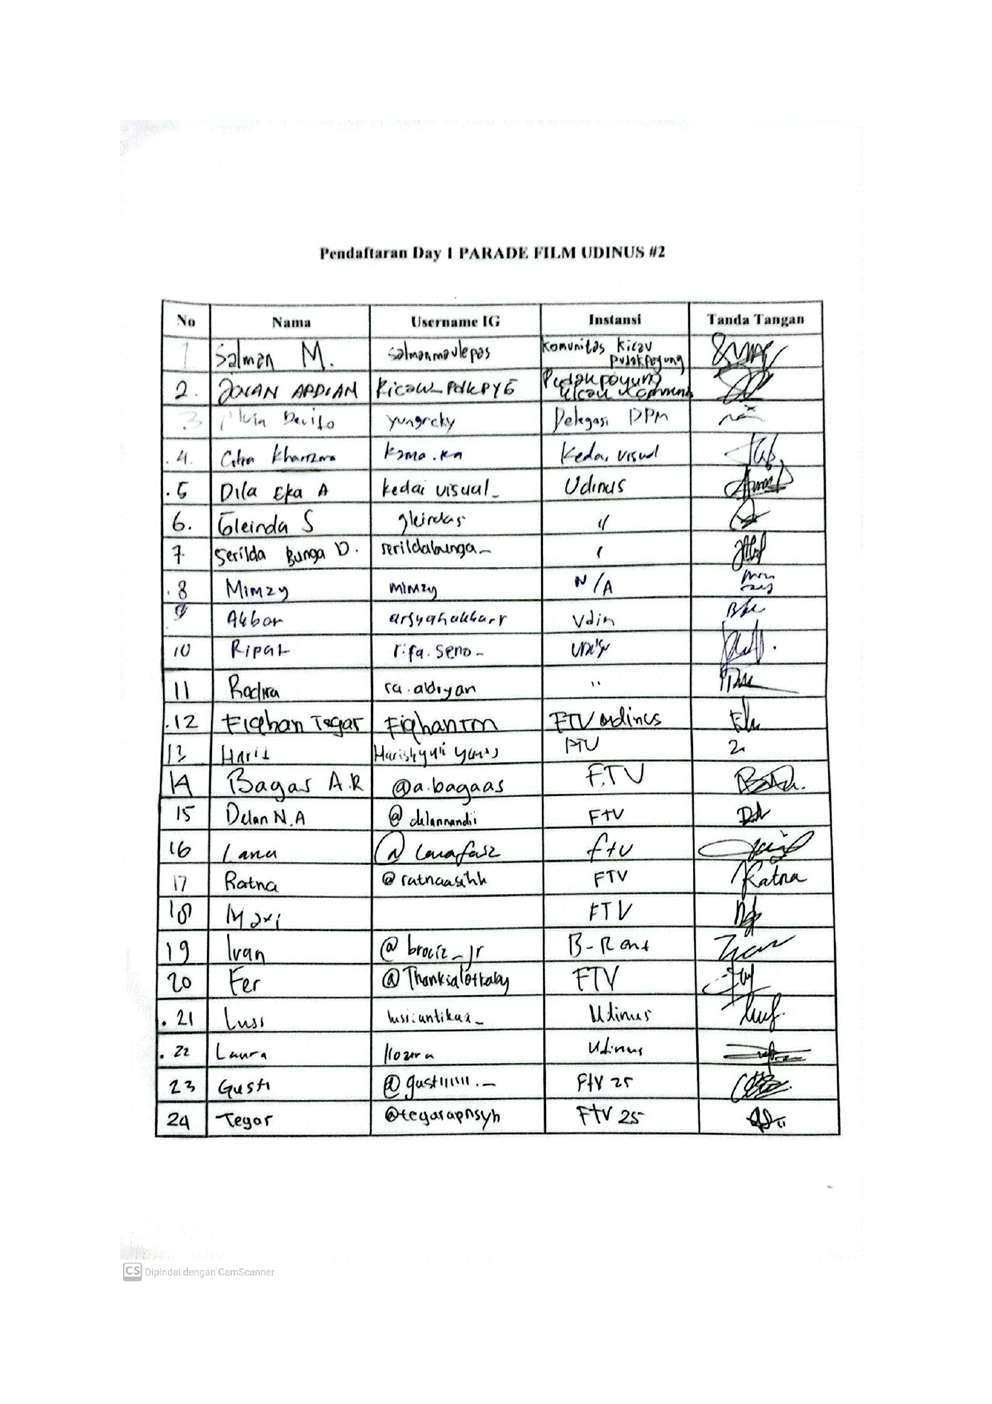 Pendaftaran Day 1 PARADE FILM UDINUS #2
No Nama Username IG Instansi Tanda Tangan
1 Salman M. salmanmaulepas Komunitas Kicau pudakpayung
2. ARDIAN Pudakpayung
3 Devito yungrcky Delegasi DPM
4. Citra Kedai visual
5 Dila Eka A kedai visual_ Udinus
6. Gleinda S gleindas "
7 Serilda Bunga D. serildabunga_
8 Mimzy mimzy N/A
9 Akbar Udin
10 Ripat rifa.seno_
11 Radira ra.aldiyan "
12 Fiqhan Tegar Fiqhantm FTV udinus
13 Haris FTV
14 Bagas A.R @a.bagaas F.TV
15 Delan N.A @delannandi FTV
16 Lana @lanafasz ftv
17 Ratna @ratnaasihh FTV Ratna
18 FTV
19 Ivan @brociz_jr
20 Fer @Thanksalotbaby FTV
21 Lussi Udinus
22 Laura Udinus
23 Gusti @gustiiiiii._ FTV 25
24 Tegar @tegarapnsyh FTV 25
CS Dipindai dengan CamScanner